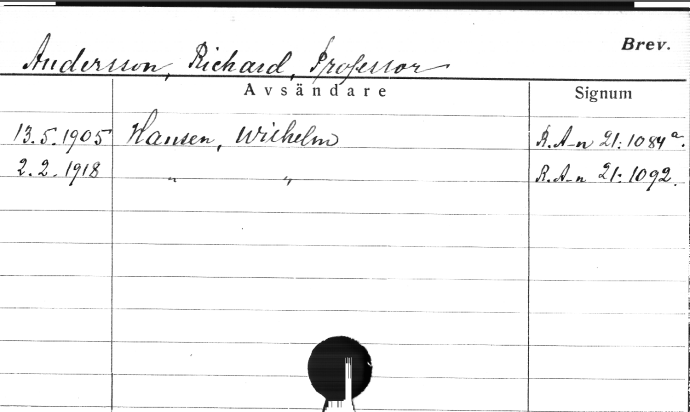 Brev.
Andersson, Richard, Professor
Avsändare Signum
13.5.1905 Hansen, Wilhelm R.A-n 21:1084a.
2.2.1918 " " R.A-n 21:1092.